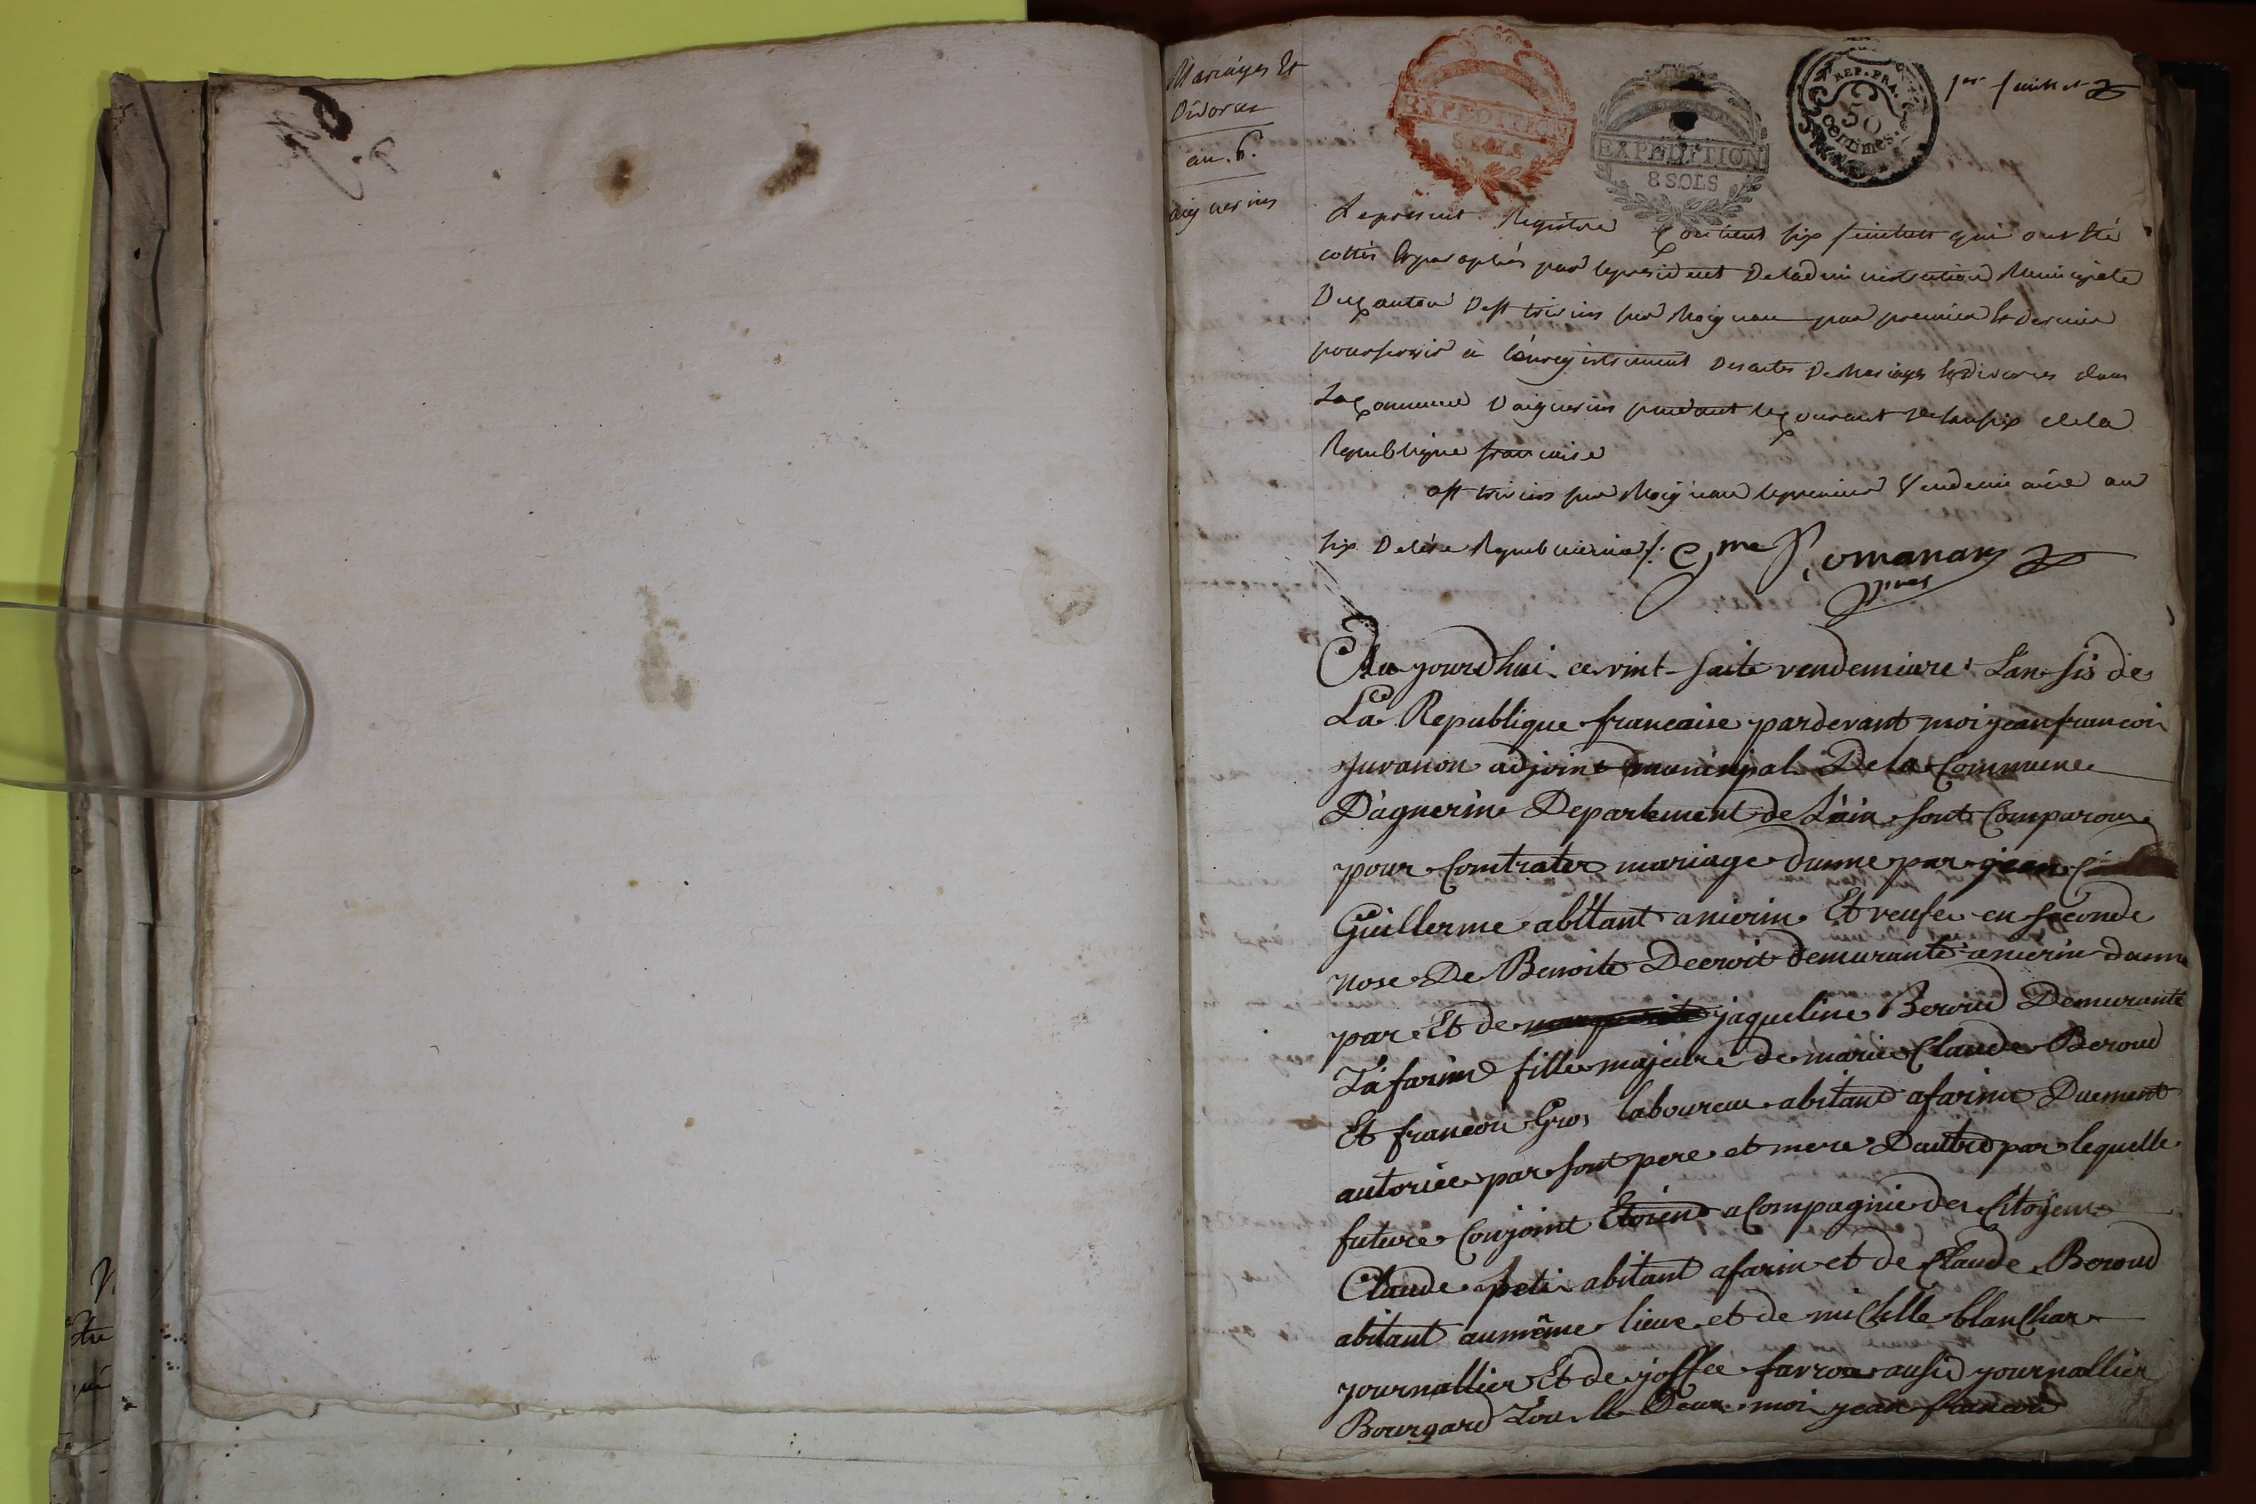 Mariages Et
Divorces
an 6.
aiguerins
EXPEDITION
8 SOLS
EXPEDITION
8 SOLS
REP. FRA.
50
centimes.
1er feuillet
Le present Registre Contient six feuillets qui ont Eté
cottés Et paraphés par le president De ladministration Municipale
Du Canton De st trivier sur Moignan par premier Et dernier
pour servir à l'enregistrement Des actes De Mariages Et divorces dans
La Commune D'aiguerins pendant le Courant De l'an six de la
Republique francaise
a st trivier sur Moignan le premier Vendemiaire an
six De l'ère Republicaine /. Cme Romanans
Au jourdhui ce vint-saite vendemiare Lan sis de
La Republique francaise pardevant moi jean francoi
juvanon adjoint municipal De la Commune
D'agnerine Departement de L'ain sont Comparou
pour Comtrater mariage dunne par jean
Guillerme abitant anierin Et veufe en seconde
nose De Benoite Decroit demurante anierin dunne
par Et de marguerite jaqueline Beroud Demurante
La farin fille majeure de marie Claude Beroud
Et francoi Gros laboureu abitant a farin Duement
autorice par sont pere et mere Dautre par lequelle
future Conjoint Etoient a Compagnie de Citoyen
Claude peti abitant afarin et de Claude Beroud
abitant au même lieue et de miChelle blanChar
journallier Et de josse favron ausi journallier
Bourgard Tou le Deux moi jean francoi